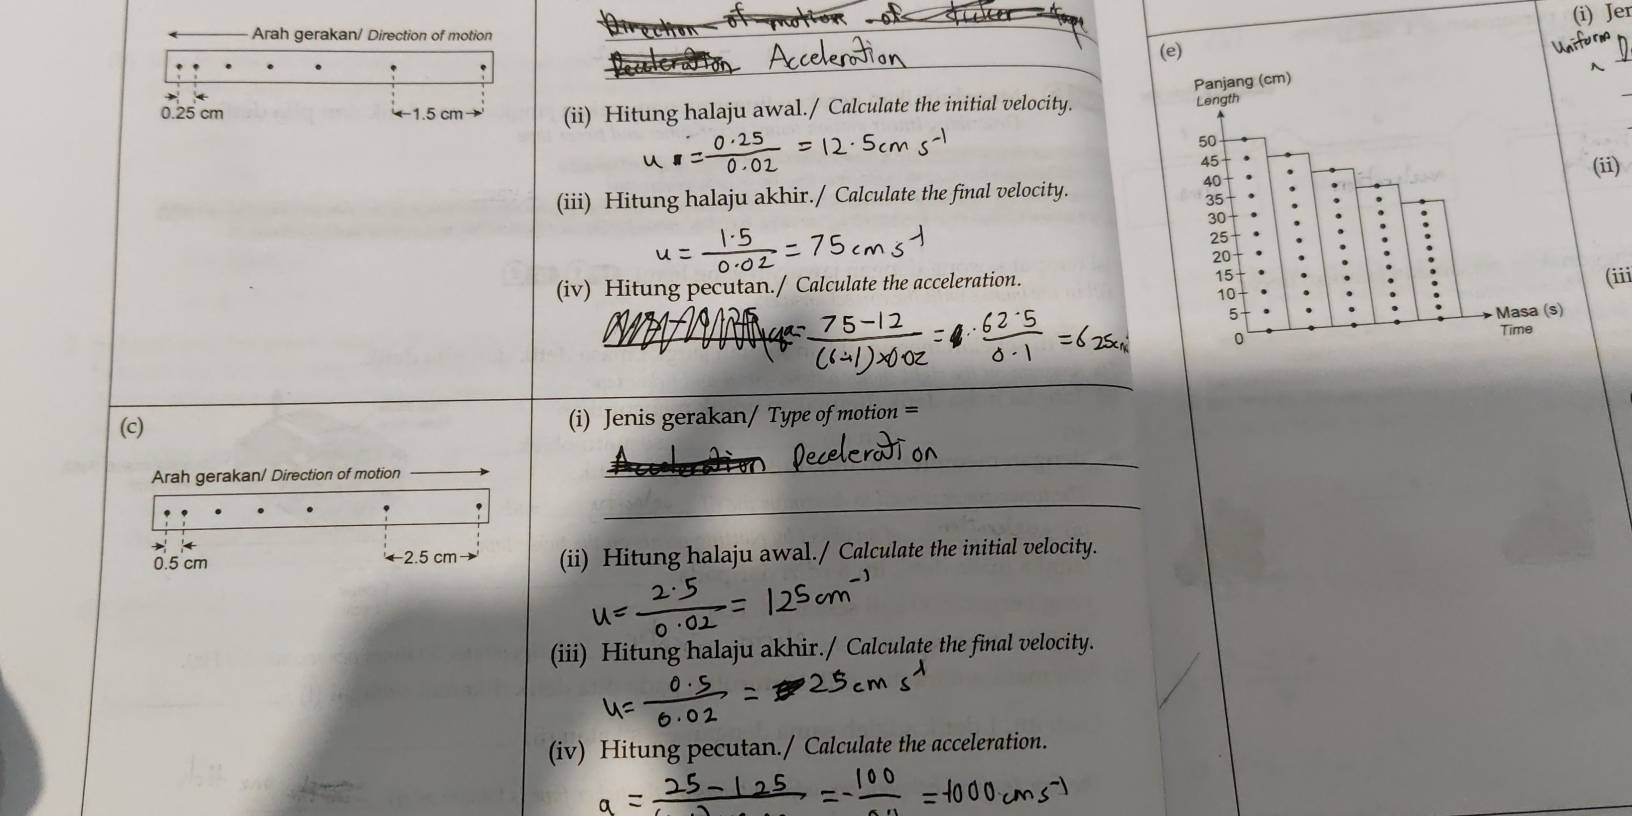 Arah gerakan/ Direction of motion
0.25 cm
1.5 cm
Direction of motion of ticker tape
Deceleration Acceleration
(ii) Hitung halaju awal./ Calculate the initial velocity.
u = 0.25/0.02 = 12.5cm s⁻¹
(iii) Hitung halaju akhir./ Calculate the final velocity.
u = 1.5/0.02 = 75cm s⁻¹
(iv) Hitung pecutan./ Calculate the acceleration.
a= 75-12/(6-1)×0.02 = 62.5/0.1 = 625cm
(c)
Arah gerakan/ Direction of motion
0.5 cm
2.5 cm
(i) Jenis gerakan/ Type of motion =
Acceleration Deceleration
(ii) Hitung halaju awal./ Calculate the initial velocity.
u= 2.5/0.02 = 125cm⁻¹
(iii) Hitung halaju akhir./ Calculate the final velocity.
u= 0.5/0.02 = 25cm s⁻¹
(iv) Hitung pecutan./ Calculate the acceleration.
a = 25-125 = -100 = -1000 cm s⁻¹
(e)
Panjang (cm)
Length
50
45
40
35
30
25
20
15
10
5
0
Masa (s)
Time
(i) Jer
Uniform D
(ii)
(iii